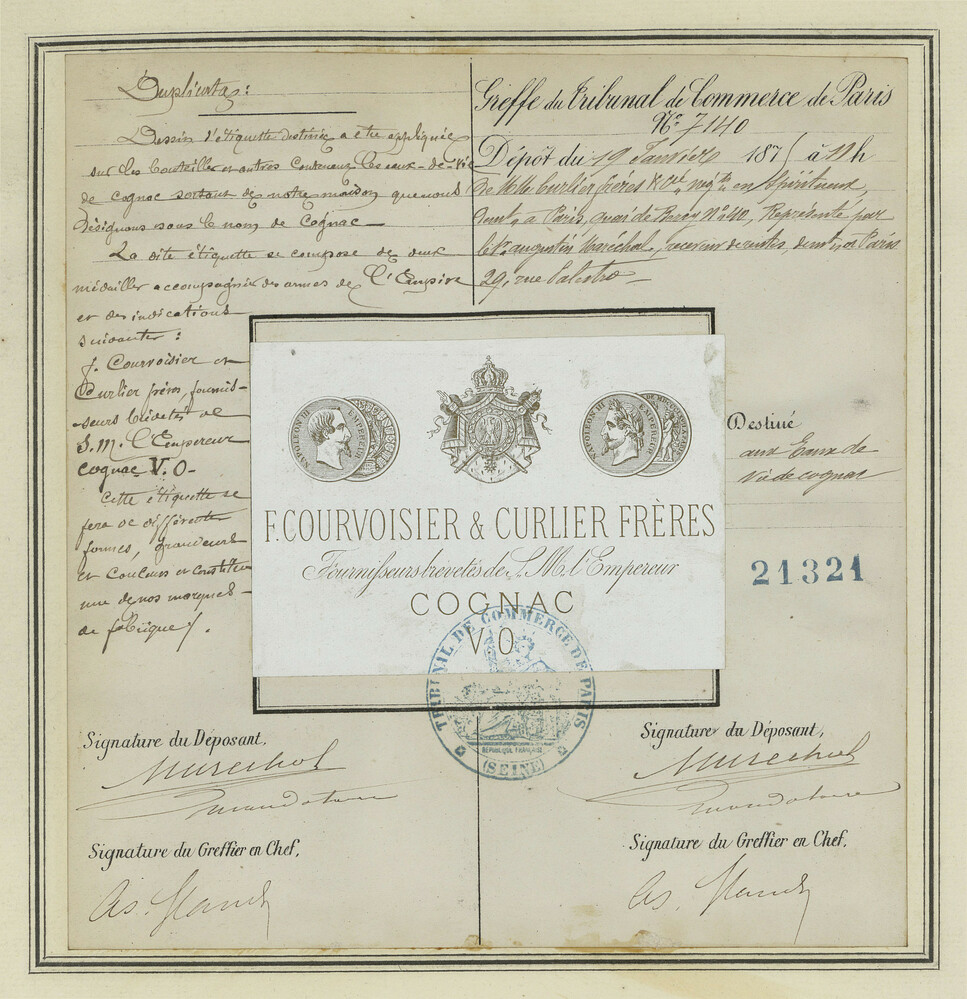 Duplicata:
Dessin d'étiquette destinée a etre appliquée
sur les bouteilles et autres contenant les eaux-de-vie
de cognac sortant de notre maison que nous
désignons sous le nom de Cognac
La dite étiquette se compose de deux
médailles accompagnée des armes de l'Empire
et des indications
suivantes :
F. Courvoisier et
Curlier frères, fournis-
seurs brévetés de
S. M. l'Empereur
cognac V. O-
Cette étiquette se
fera de différentes
formes, grandeurs
et couleurs et constitue
une de nos marques
de fabrique/.
Greffe du Tribunal de Commerce de Paris
N° 7140
Dépôt du 19 Janvier 1875 à 11 h
De MM. Curlier frères & Cie, négts en spiritueux,
demt à Paris, quai de Bercy N° 40, Représenté par
le sr augustin Maréchal, receveur de rentes, demt à Paris
29, rue Palestro
NAPOLEON III EMPEREUR
NAPOLEON III EMPEREUR
F. COURVOISIER & CURLIER FRÈRES
Fournisseurs brevetés de S. M. l'Empereur
COGNAC
V. O.
Destiné
aux Eaux de
Vie de cognac
21321
TRIBUNAL DE COMMERCE DE PARIS
RÉPUBLIQUE FRANÇAISE
(SEINE)
Signature du Déposant,
Marechal
mandataire
Signature du Greffier en Chef,
Signature du Déposant,
Marechal
mandataire
Signature du Greffier en Chef,